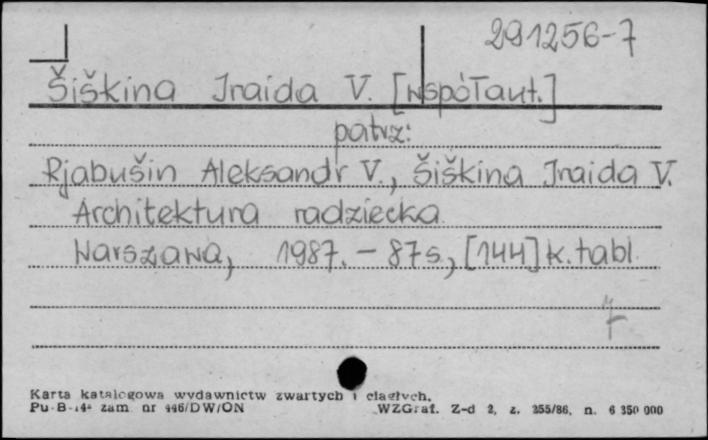 291256-7
Šiškina Iraida V. [współaut.]
patrz:
Rjabušin Aleksandr V., Šiškina Iraida V.
Architektura radziecka.
Warszawa, 1987. - 87 s., [144] k. tabl.
Karta katalogowa wydawnictw zwartych i ciągłych.
Pu-B-14 zam. nr 446/DW/ON WZGraf. Z-d 2, z. 355/86, n. 6 350 000